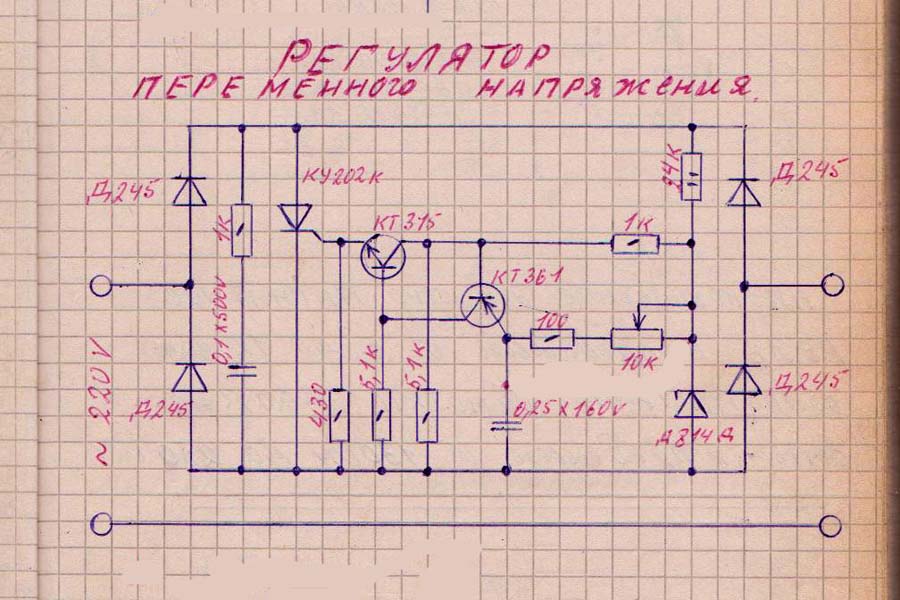 РЕГУЛЯТОР
ПЕРЕМЕННОГО НАПРЯЖЕНИЯ.
Д245
1К
КУ202К
КТ315
24К
Д245
1К
КТ361
0,1X500V
100
10К
~ 220V
Д245
430
5,1К
5,1К
0,25X160V
Д814Д
Д245